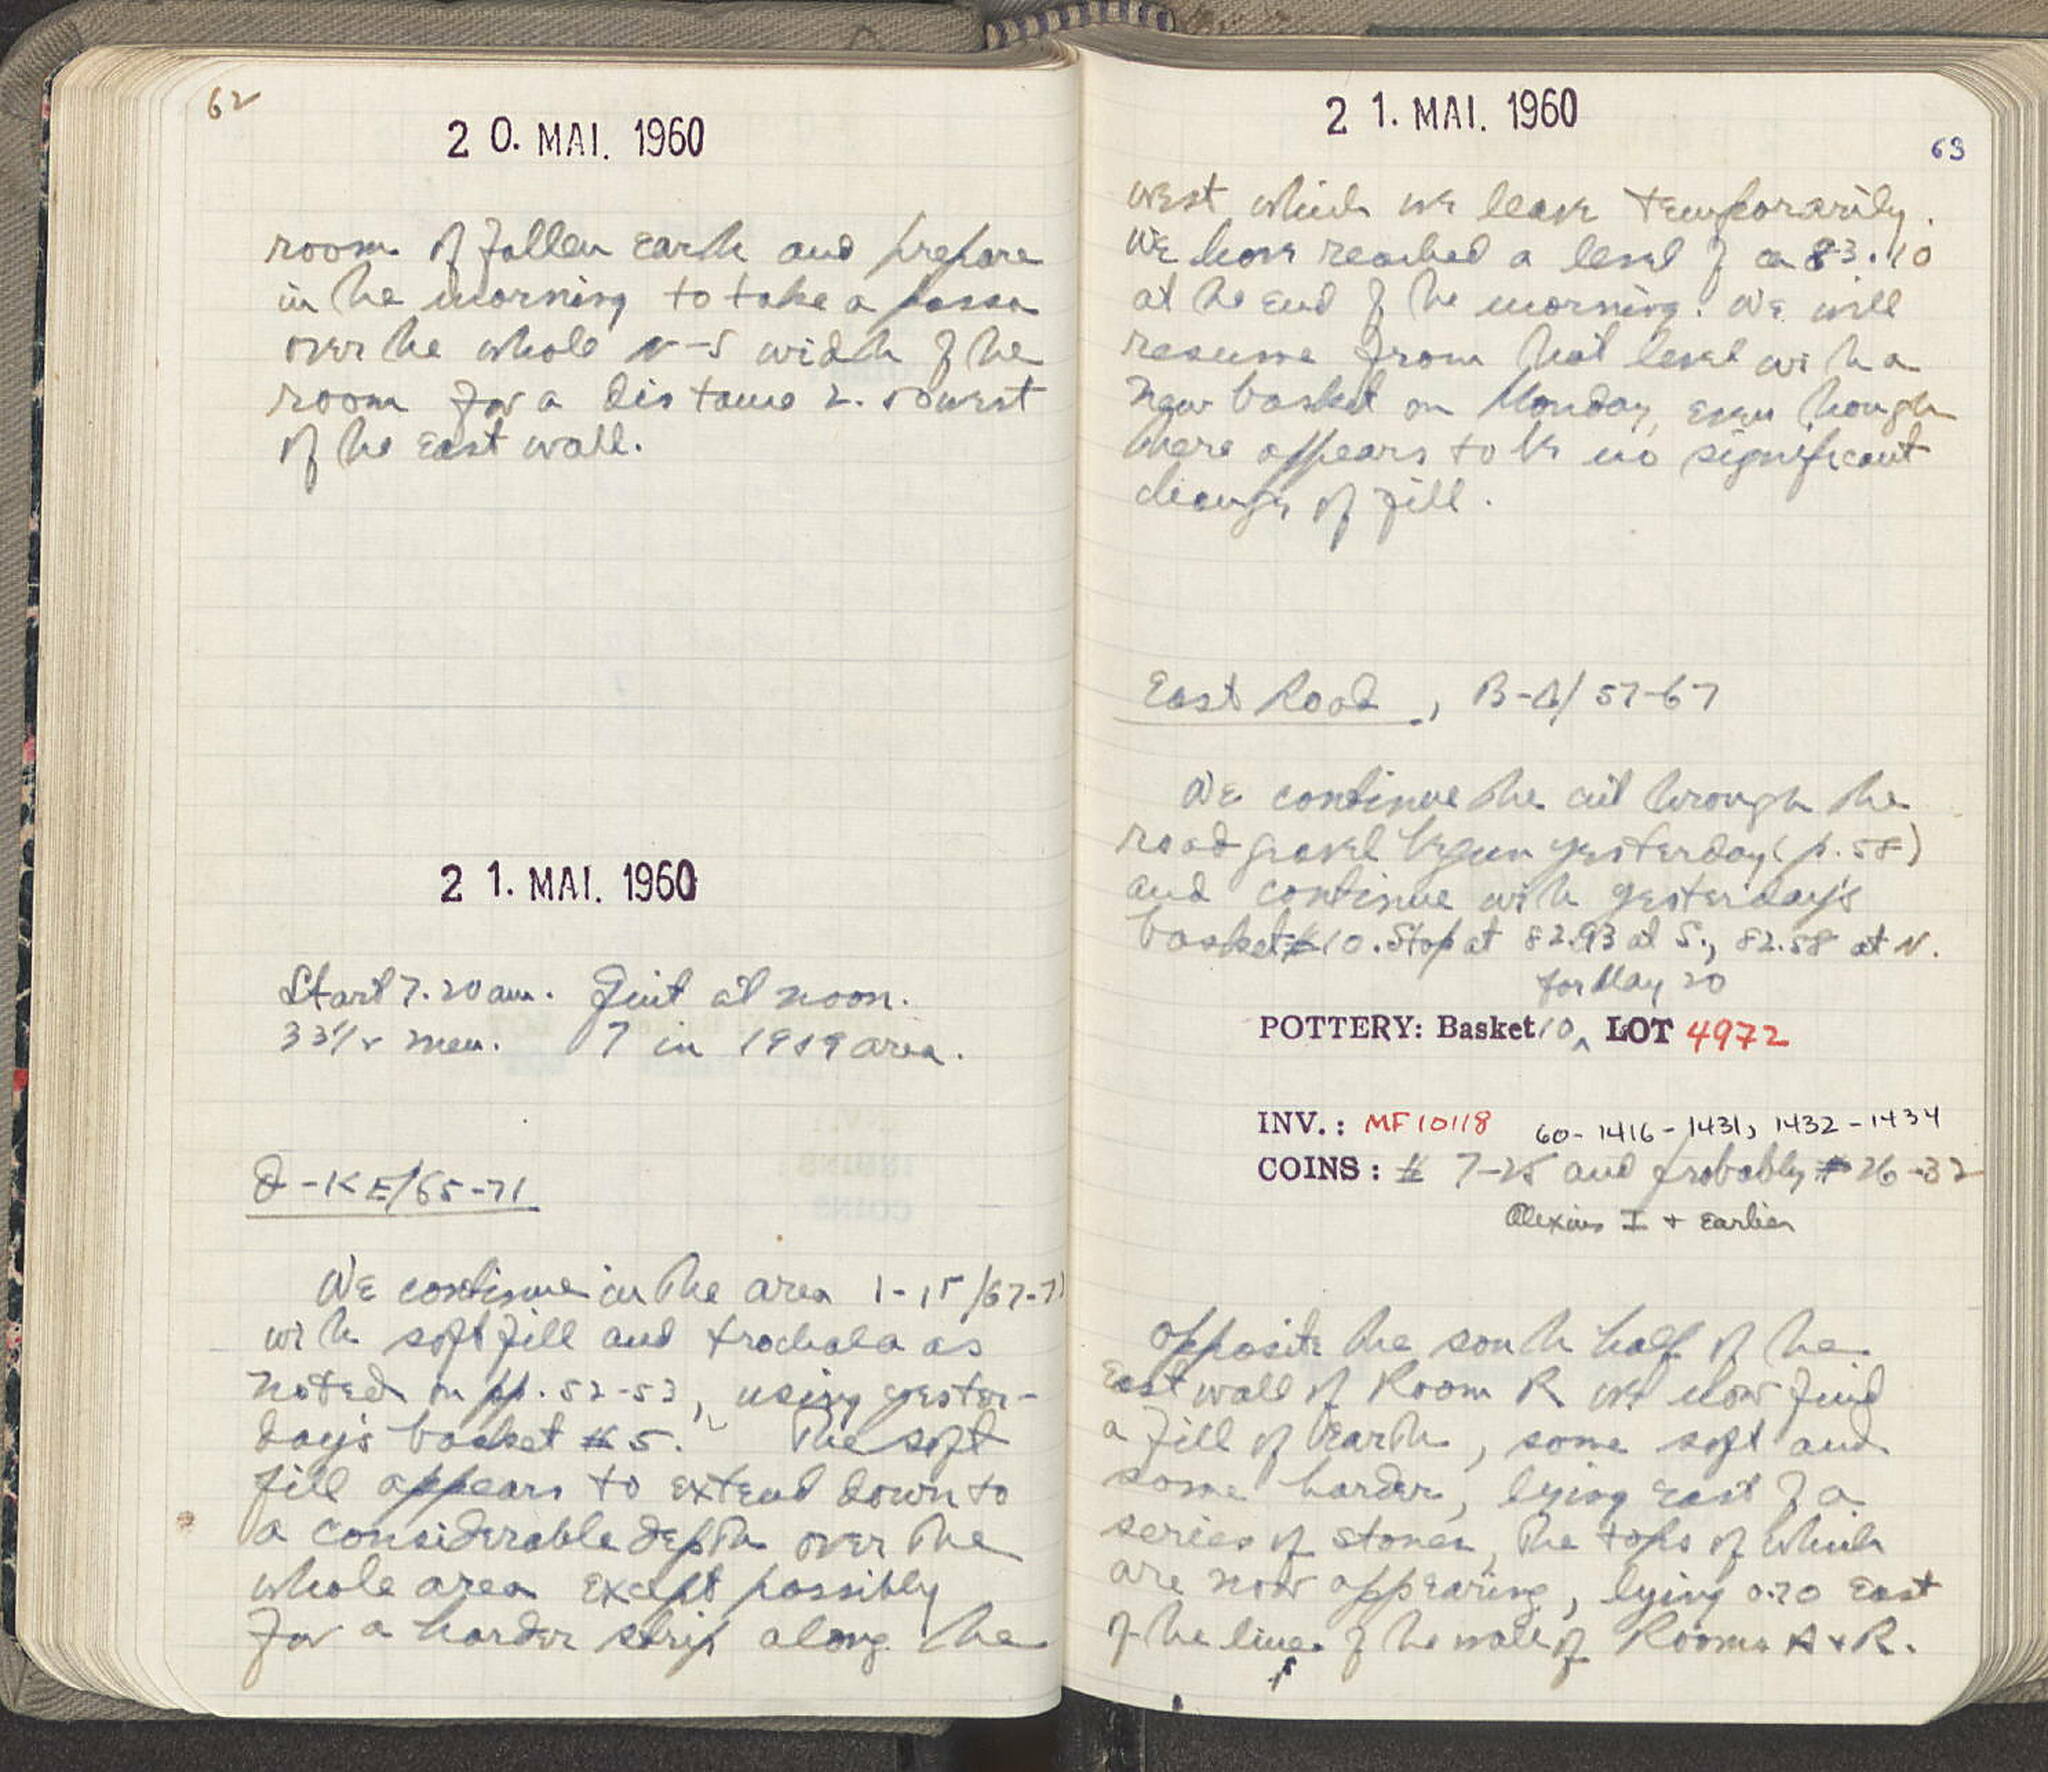 62
20. MAI. 1960
room of fallen earth and prepare
in the morning to take a passa
over the whole N-S width of the
room for a distance 2.50 west
of the east wall.
21. MAI. 1960
Start 7.20 am. Quit at noon.
33½ men. 7 in 1959 area.
-KE/65-71
We continue in the area 1-15/67-71
with soft fill and trochala as
noted on pp. 52-53, using yester-
day's basket # 5. The soft
fill appears to extend down to
a considerable depth over the
whole area except possibly
for a harder strip along the
21. MAI. 1960
63
west which we leave temporarily.
We have reached a level of ca 83.10
at the end of the morning. We will
resume from that level with a
new basket on Monday, even though
there appears to be no significant
change of fill.
East Road, B-/57-67
We continue the cut through the
road gravel begun yesterday (p. 58)
and continue with yesterday's
basket # 10. Stop at 82.93 at S., 82.58 at N.
for May 20
POTTERY: Basket 10 ^ LOT 4972
INV.: MF 10118 60-1416-1431, 1432-1434
COINS: # 7-25 and probably # 26-32
Alexius I + Earlier
Opposite the south half of the
East wall of Room R we now find
a fill of earth, some soft and
some harder, lying east of a
series of stones, the tops of which
are now appearing, lying 0.70 East
of the line of the wall of Rooms A + R.